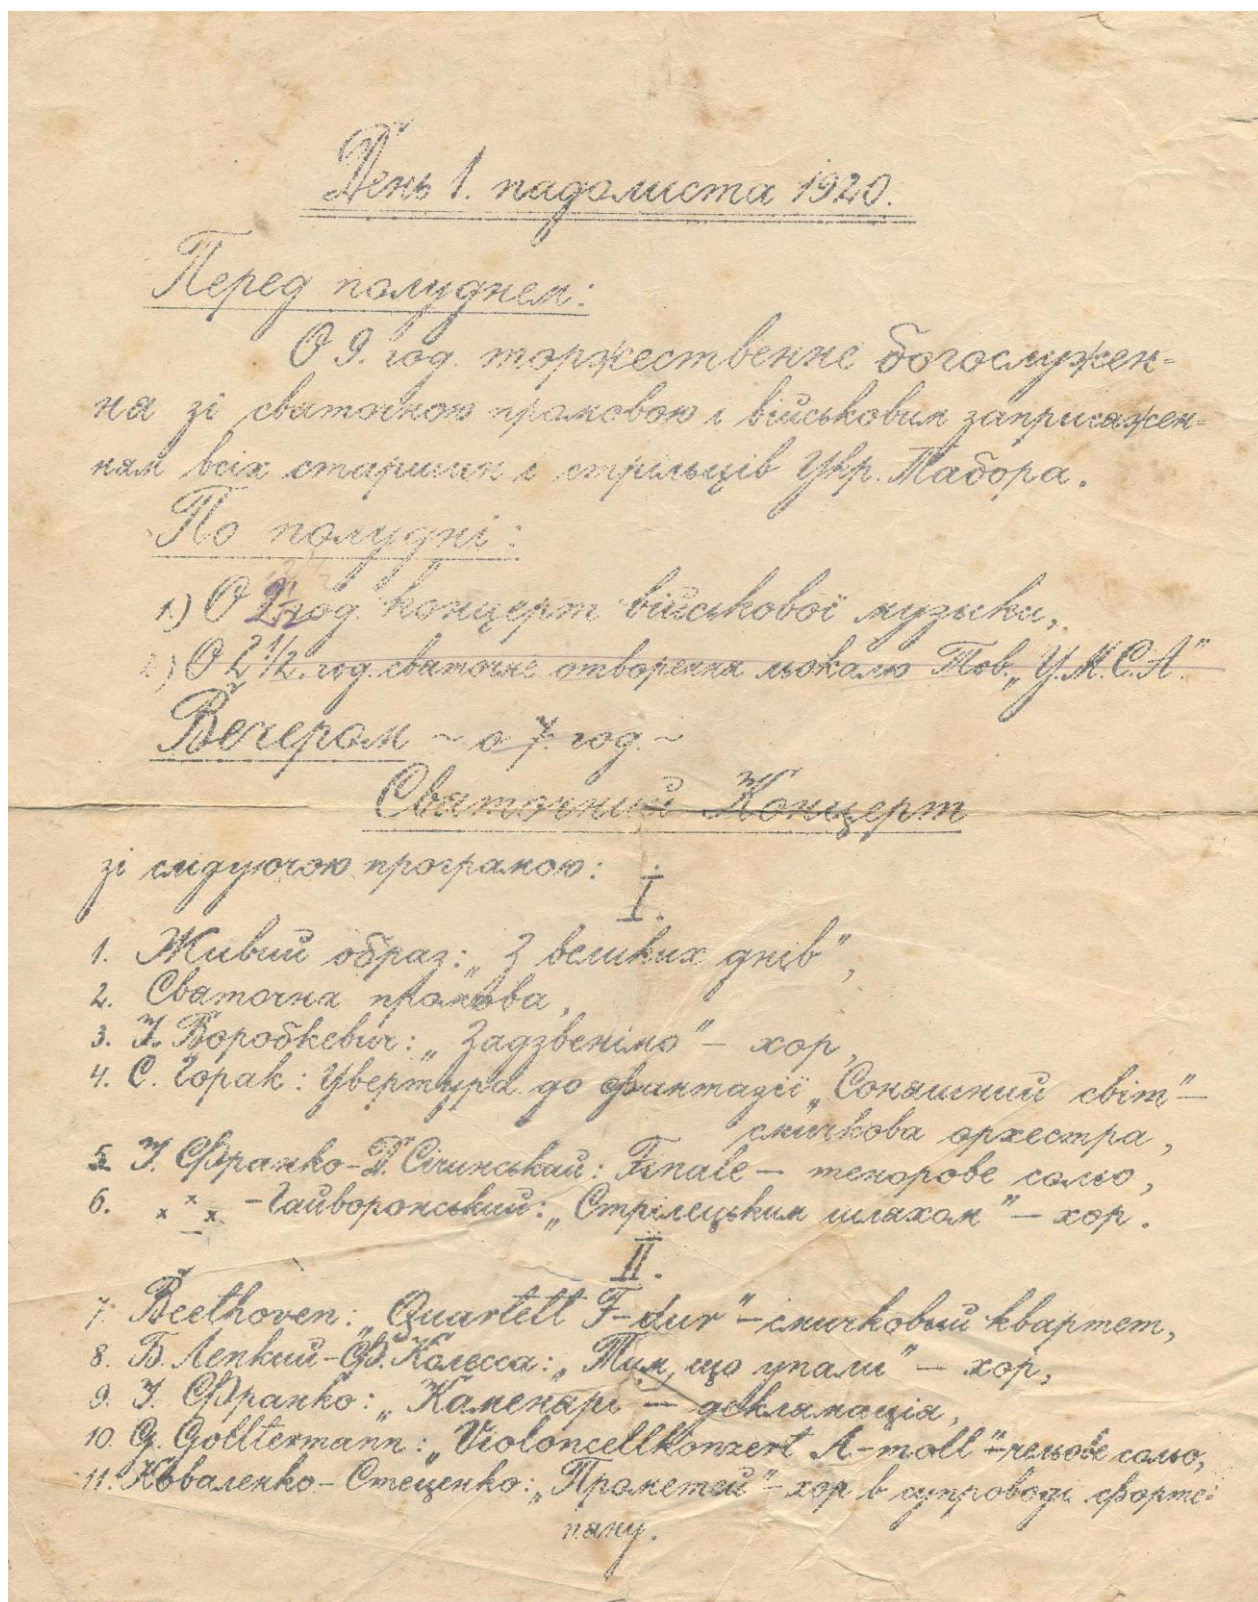 День 1. падолиста 1920.
Перед полуднем:
О 9. год. торжественне богослужен-
ня зі святочною промовою і військовим заприсяжен-
ням всіх старшин і стрільців Укр. Табора.
По полудні:
1.) О 2½ год. концерт військової музыки,
2.) О 2 1/2. год. святочне отворення льокалю Тов. „У.М.С.А."
Вечером ~ о 7. год. ~
Святочний Концерт
зі слідуючою програмою:
I.
1. Живий образ: „З великих днів",
2. Святочна промова,
3. І. Воробкевич: „Задзвенімо" – хор,
4. С. Горак: Увертура до фантазії „Соняшний світ" –
смичкова орхестра,
5. І. Франко – Д. Січинський: Finale – тенорове сольо,
6. x x x – Гайворонський: „Стрілецьким шляхом" – хор.
II.
7. Beethoven: „Quartett F-dur" – смичковый квартет,
8. Б. Лепкий – Ф. Колесса: „Тим, що упали" – хор,
9. І. Франко: „Каменярі – деклямація,
10. G. Golltermann: „Violoncellkonzert A-moll" – чельове сольо,
11. Коваленко – Стеценко: „Прометей" – хор в супроводі форте-
пяну.